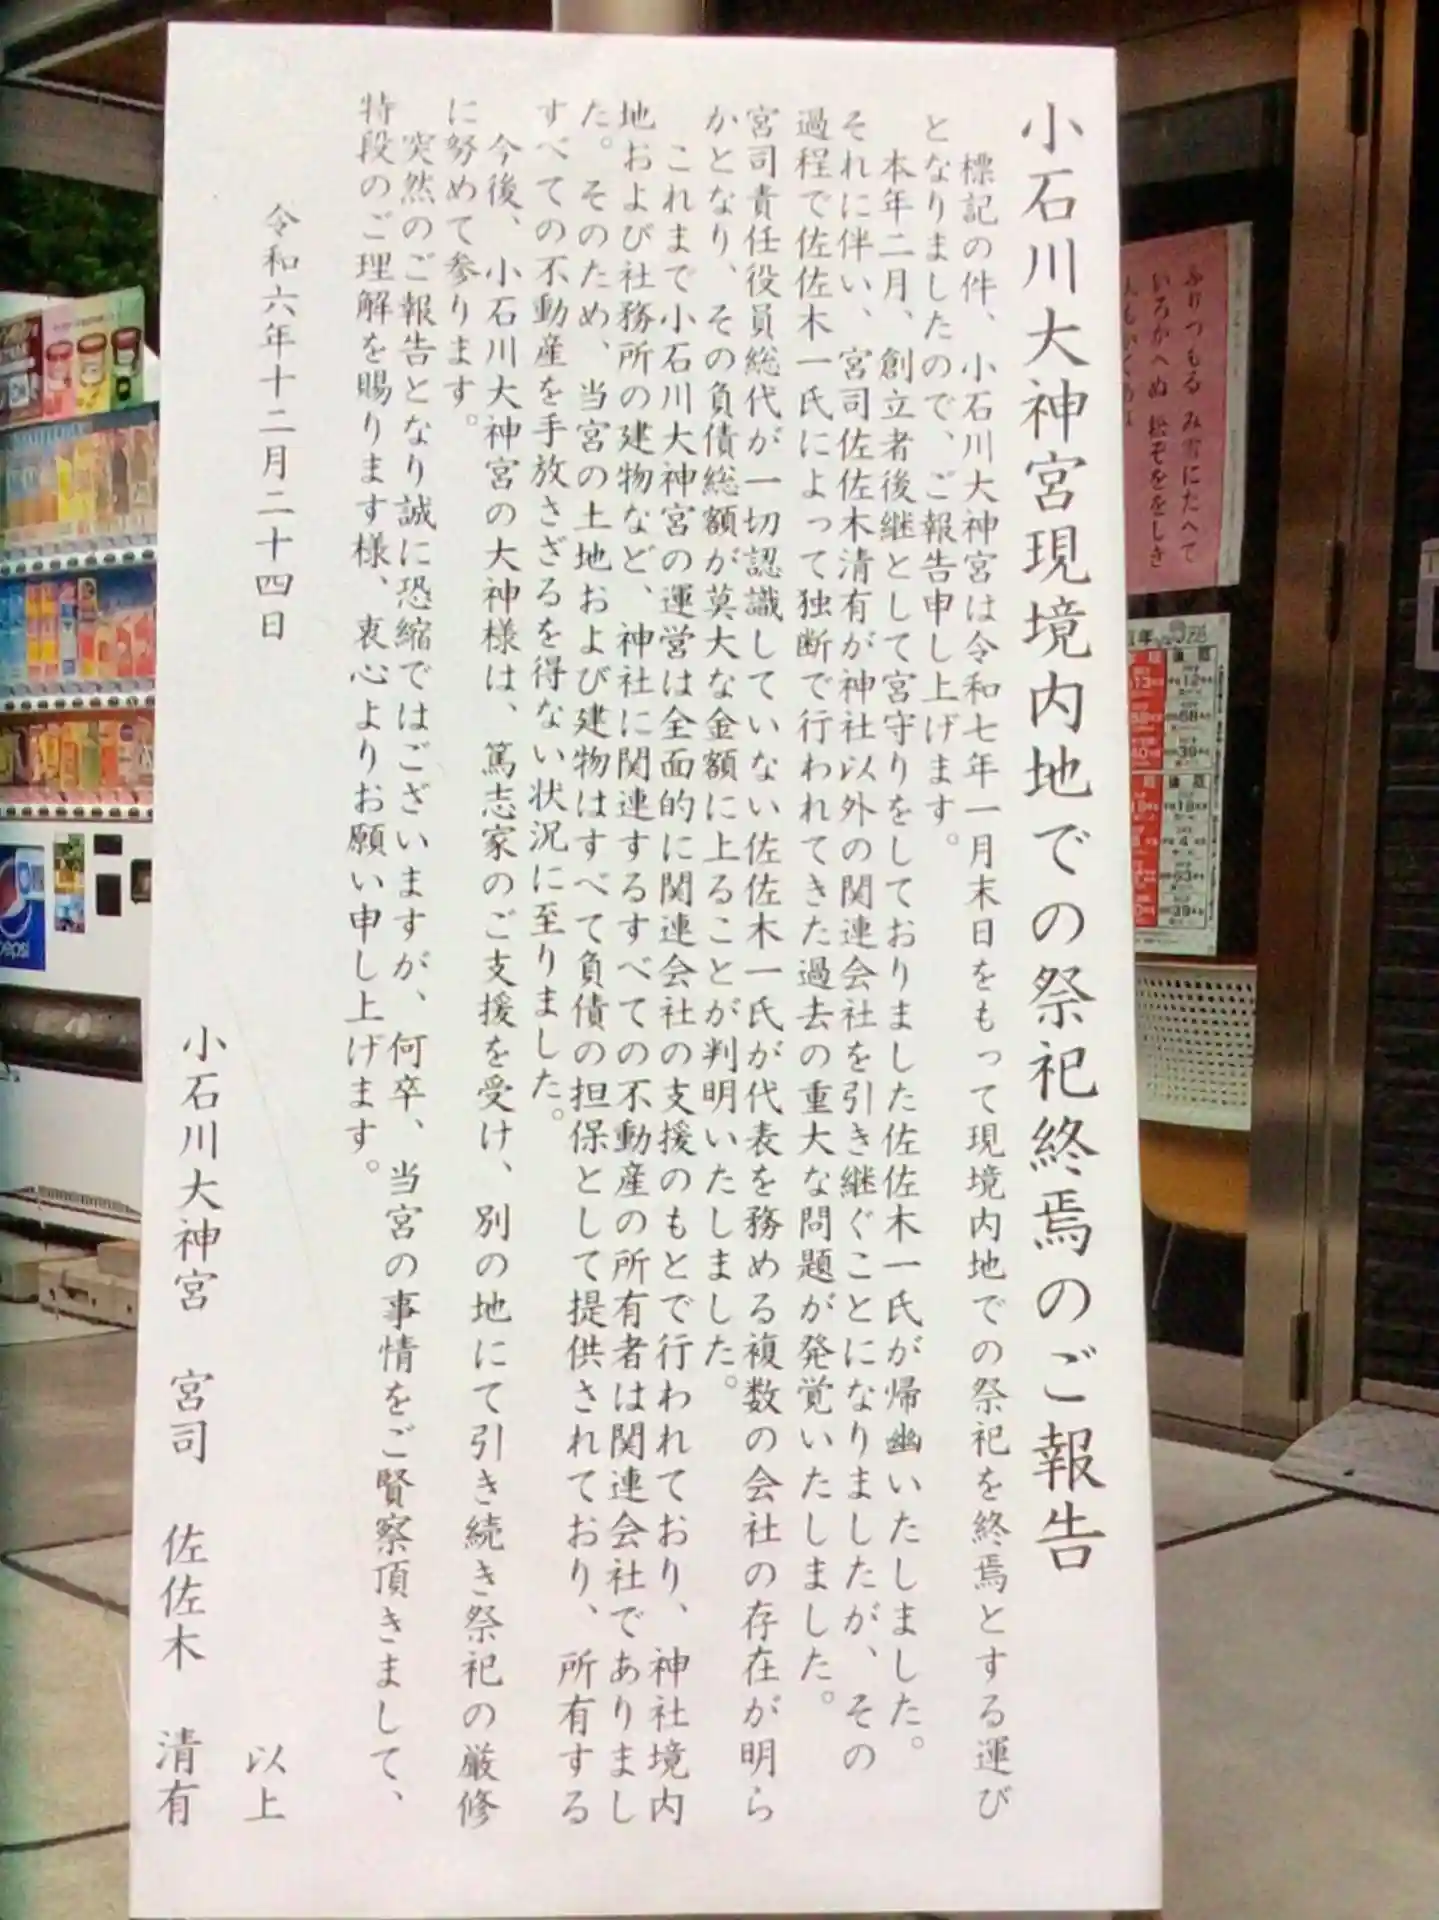 小石川大神宮現境内地での祭祀終焉のご報告
標記の件、小石川大神宮は令和七年一月末日をもって現境内地での祭祀を終焉とする運び
となりましたので、ご報告申し上げます。
本年二月、創立者後継として宮守りをしておりました佐佐木一氏が帰幽いたしました。
それに伴い、宮司佐佐木清有が神社以外の関連会社を引き継ぐことになりましたが、その
過程で佐佐木一氏によって独断で行われてきた過去の重大な問題が発覚いたしました。
宮司責任役員総代が一切認識していない佐佐木一氏が代表を務める複数の会社の存在が明ら
かとなり、その負債総額が莫大な金額に上ることが判明いたしました。
これまで小石川大神宮の運営は全面的に関連会社の支援のもとで行われており、神社境内
地および社務所の建物など、神社に関連するすべての不動産の所有者は関連会社でありまし
た。そのため、当宮の土地および建物はすべて負債の担保として提供されており、所有する
すべての不動産を手放さざるを得ない状況に至りました。
今後、小石川大神宮の大神様は、篤志家のご支援を受け、別の地にて引き続き祭祀の厳修
に努めて参ります。
突然のご報告となり誠に恐縮ではございますが、何卒、当宮の事情をご賢察頂きまして、
特段のご理解を賜ります様、衷心よりお願い申し上げます。
令和六年十二月二十四日
以上
小石川大神宮 宮司 佐佐木 清有
ふりつもる み雪にたへて
いろかへぬ 松ぞををしき
pepsi